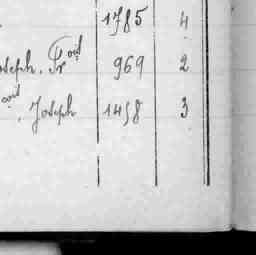 1785 4
oseph. Fr 969 2
, Joseph 1458 3